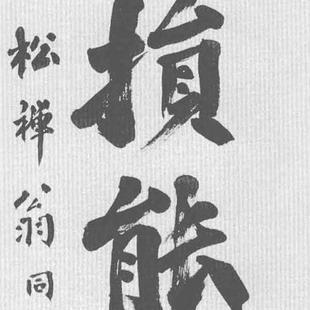 損能
松禪翁同